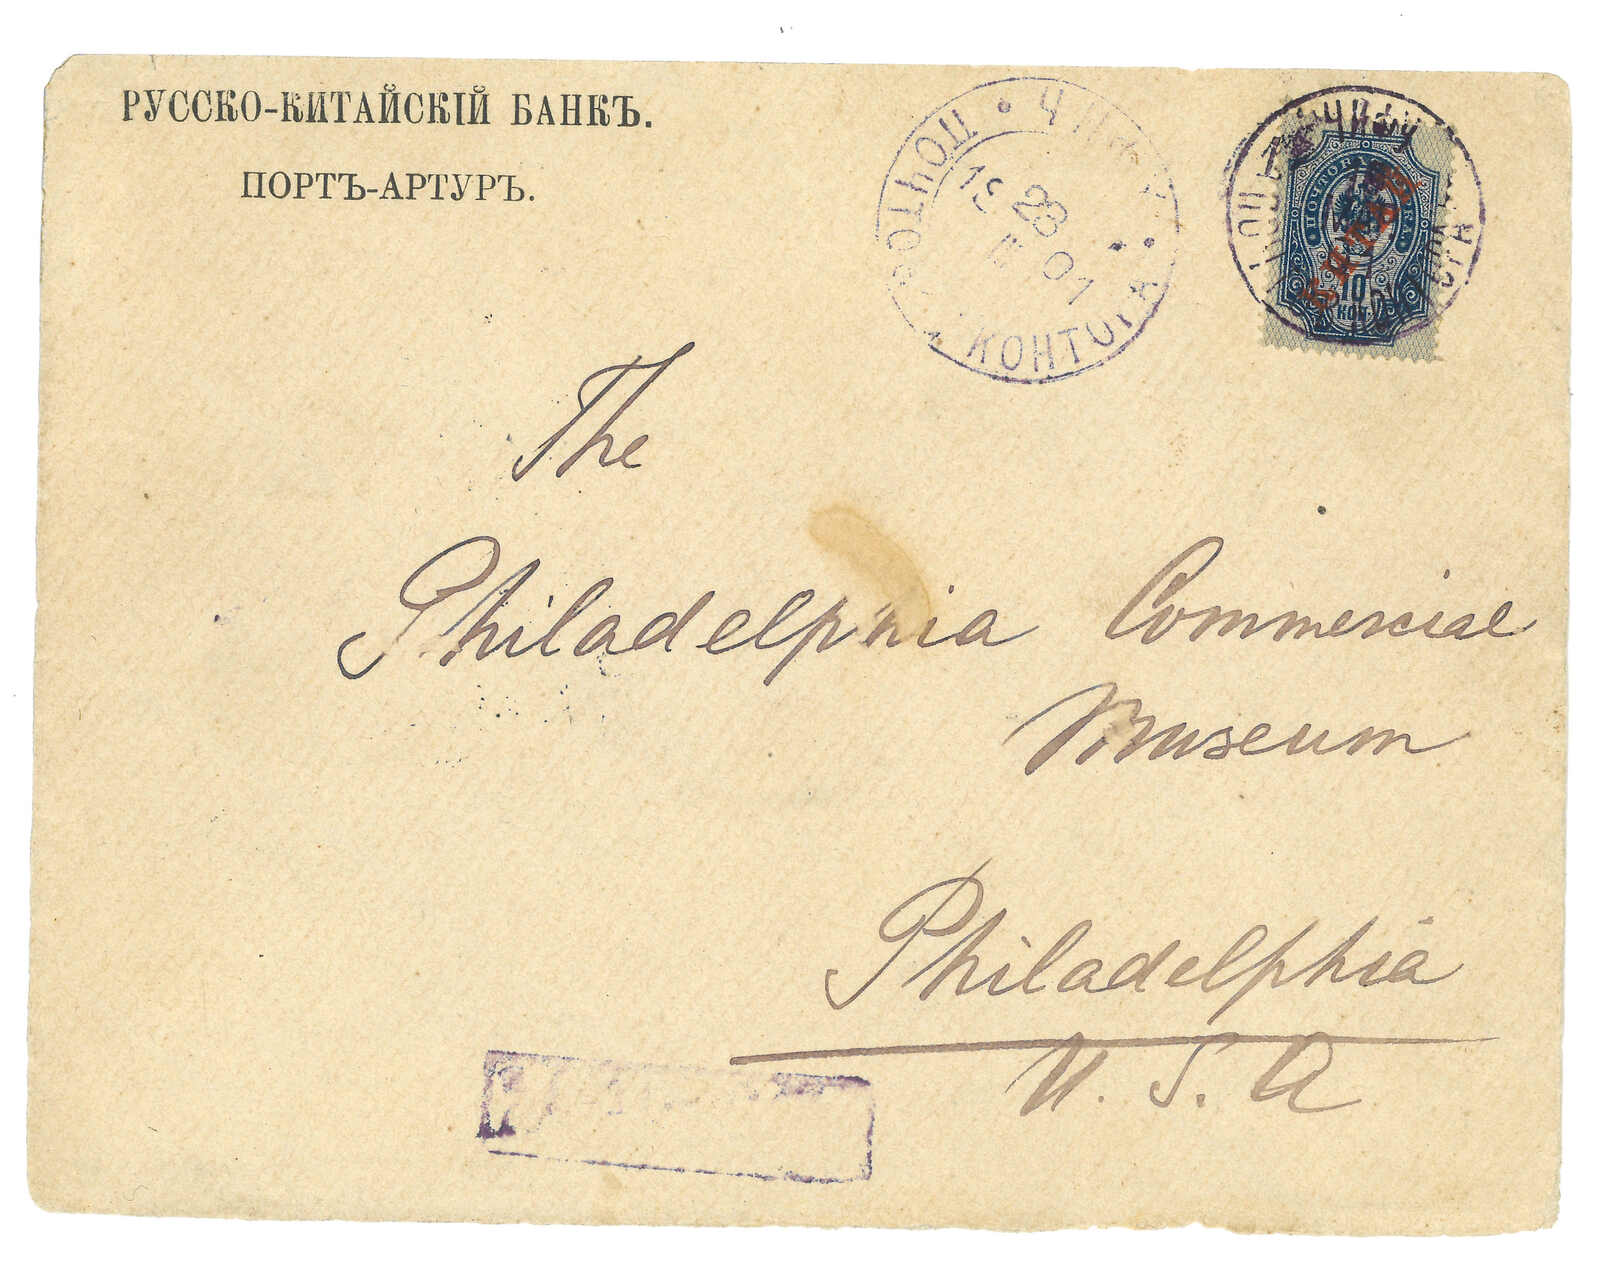 РУССКО-КИТАЙСКІЙ БАНКЪ.
ПОРТЪ-АРТУРЪ.
ПОЧТОВАЯ КОНТОРА
19 28 01
КИТАЙ
10
КОП.
The
Philadelphia Commercial
Museum
Philadelphia
U. S. A